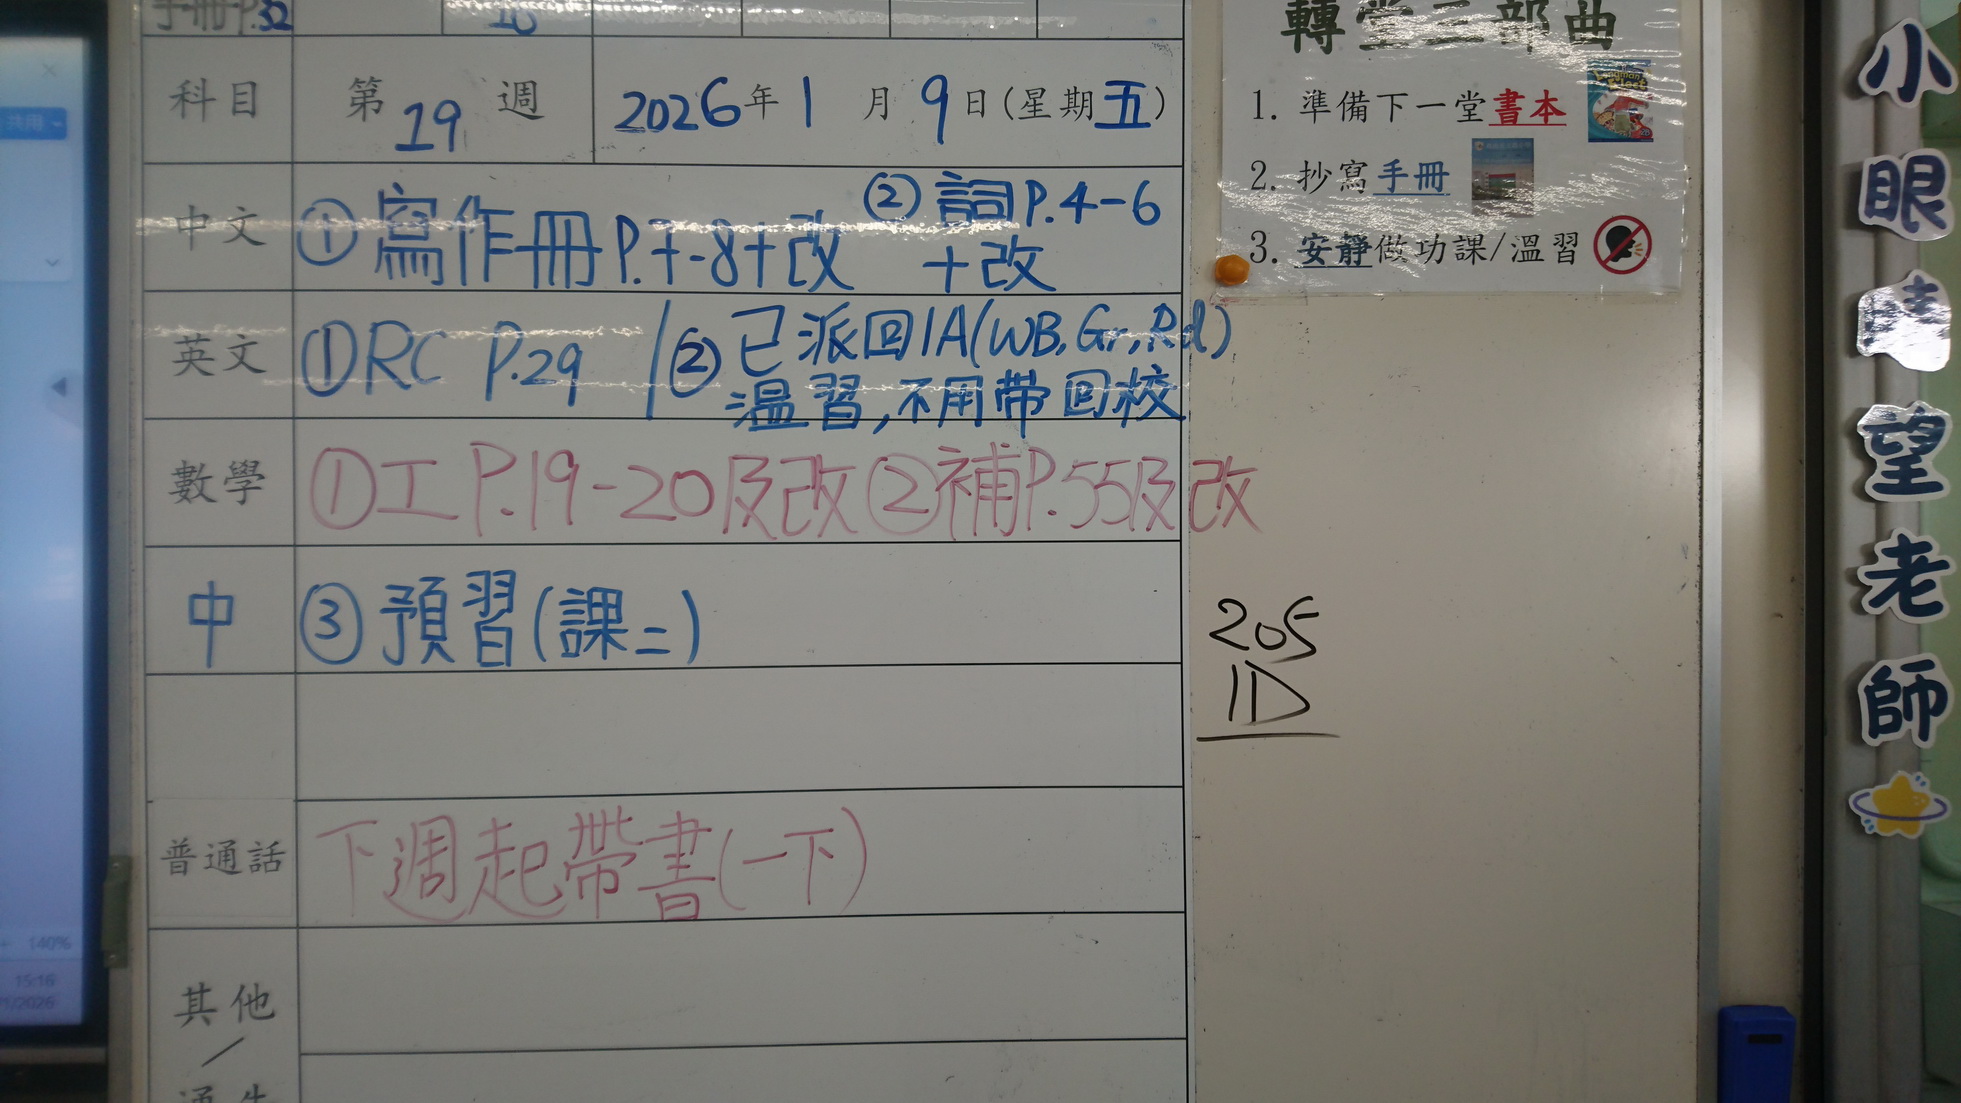 手冊P.32
科目 第19週 2026年1月9日(星期五)
中文 ①寫作冊P.7-8+改 ②詞P.4-6
+改
英文 ①RC P.29 / ②已派回1A(WB,Gr,Rd)
溫習,不用帶回校
數學 ①工P.19-20及改②補P.55及改
中 ③預習(課二)
普通話 下週起帶書(一下)
其他
/
轉堂三部曲
1. 準備下一堂書本
2. 抄寫手冊
3. 安靜做功課/溫習
205
1D
小眼睛望老師
共用
140%
15:16
/1/2026